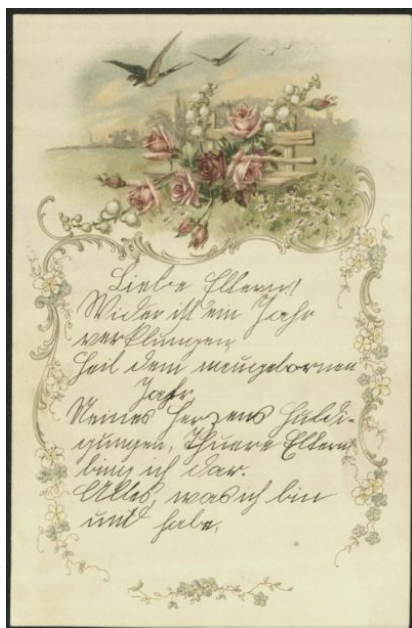 Liebe Eltern!
Wider ist ein Jahr
verklungen,
Heil dem neugebornen
Jahr,
Meines Herzens Huldi-
gungen, Thuere Eltern
bring ich dar.
Alles, was ich bin
und habe,